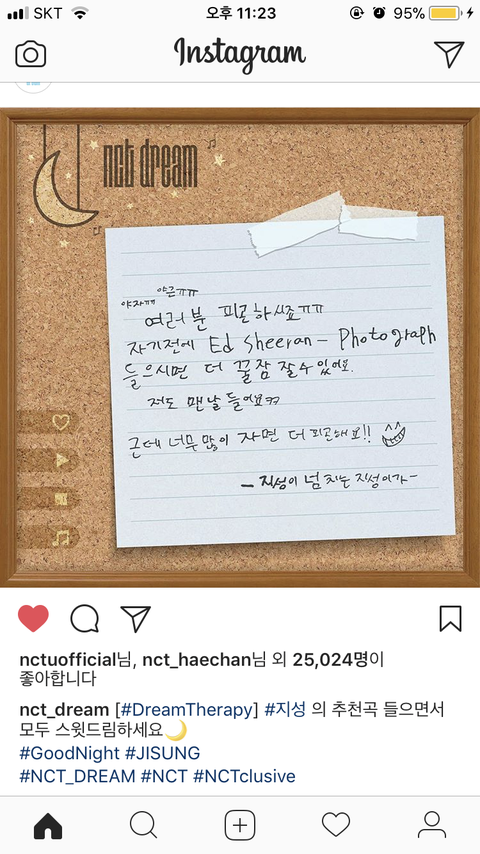 SKT 오후 11:23 95%
Instagram
nct dream
야자ㅠㅠ 야근ㅠㅠ
여러분 피곤하시죠ㅠㅠ
자기전에 Ed Sheeran - Photograph
들으시면 더 꿀잠 잘수 있어요.
저도 맨날 들어요ㅋㅋ
근데 너무 많이 자면 더 피곤해요!!
- 지성이 넘치는 지성이가 -
nctuofficial님, nct_haechan님 외 25,024명이
좋아합니다
nct_dream [#DreamTherapy] #지성 의 추천곡 들으면서
모두 스윗드림하세요🌙
#GoodNight #JISUNG
#NCT_DREAM #NCT #NCTclusive